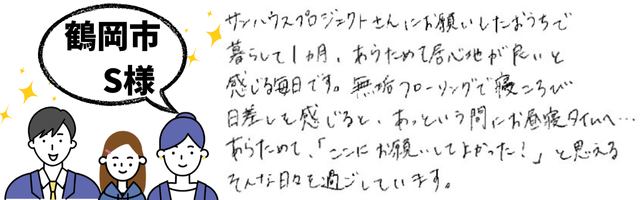 鶴岡市
S様
サンハウスプロジェクトさんにお願いしたおうちで
暮らして1カ月、あらためて居心地が良いと
感じる毎日です。無垢フローリングで寝ころび
日差しを感じると、あっという間にお昼寝タイムへ…
あらためて、「ここにお願いしてよかった!」と思える
そんな日々を過ごしています。